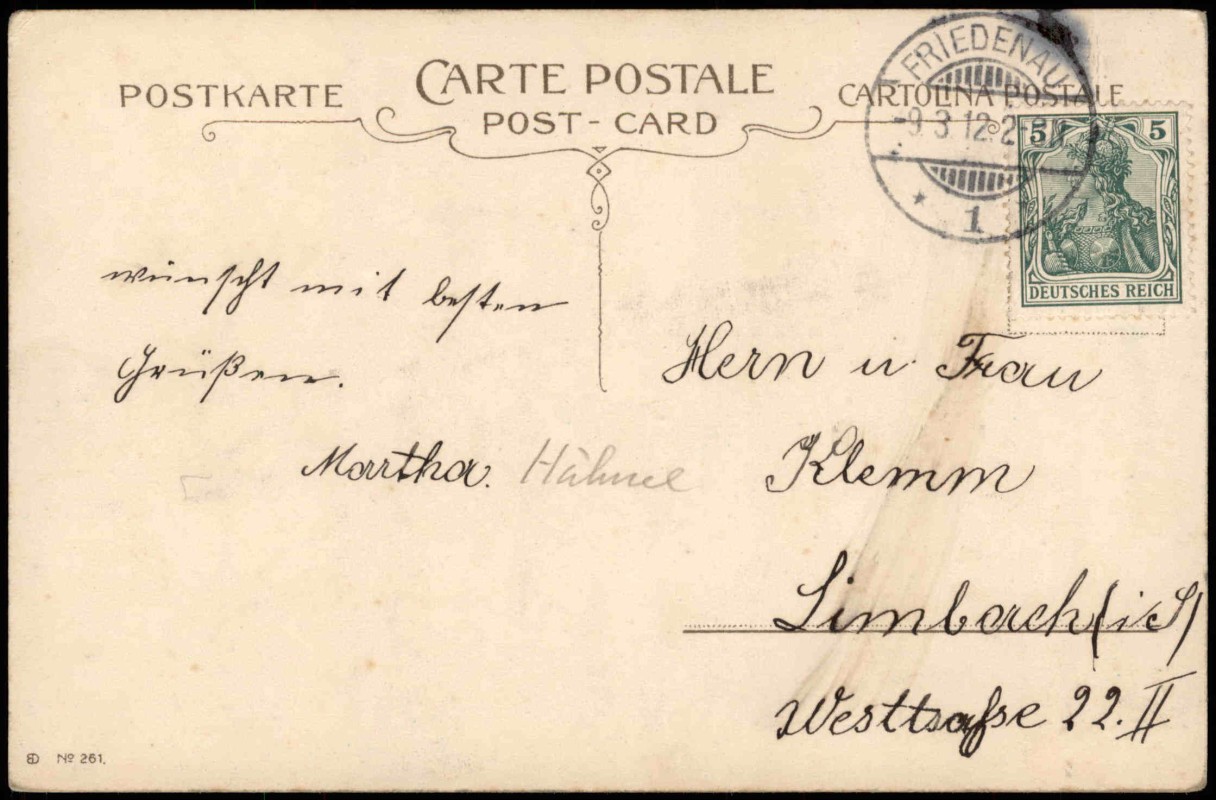 POSTKARTE
CARTE POSTALE
POST-CARD
CARTOLINA POSTALE
FRIEDENAU
-9.3.12.2-3N
* 1
5 5
DEUTSCHES REICH
wünscht mit besten
Grüßen.
Martha. Hähnel
Hern u. Frau
Klemm
Limbach (i S)
Westtsaße 22. II
Nº 261.